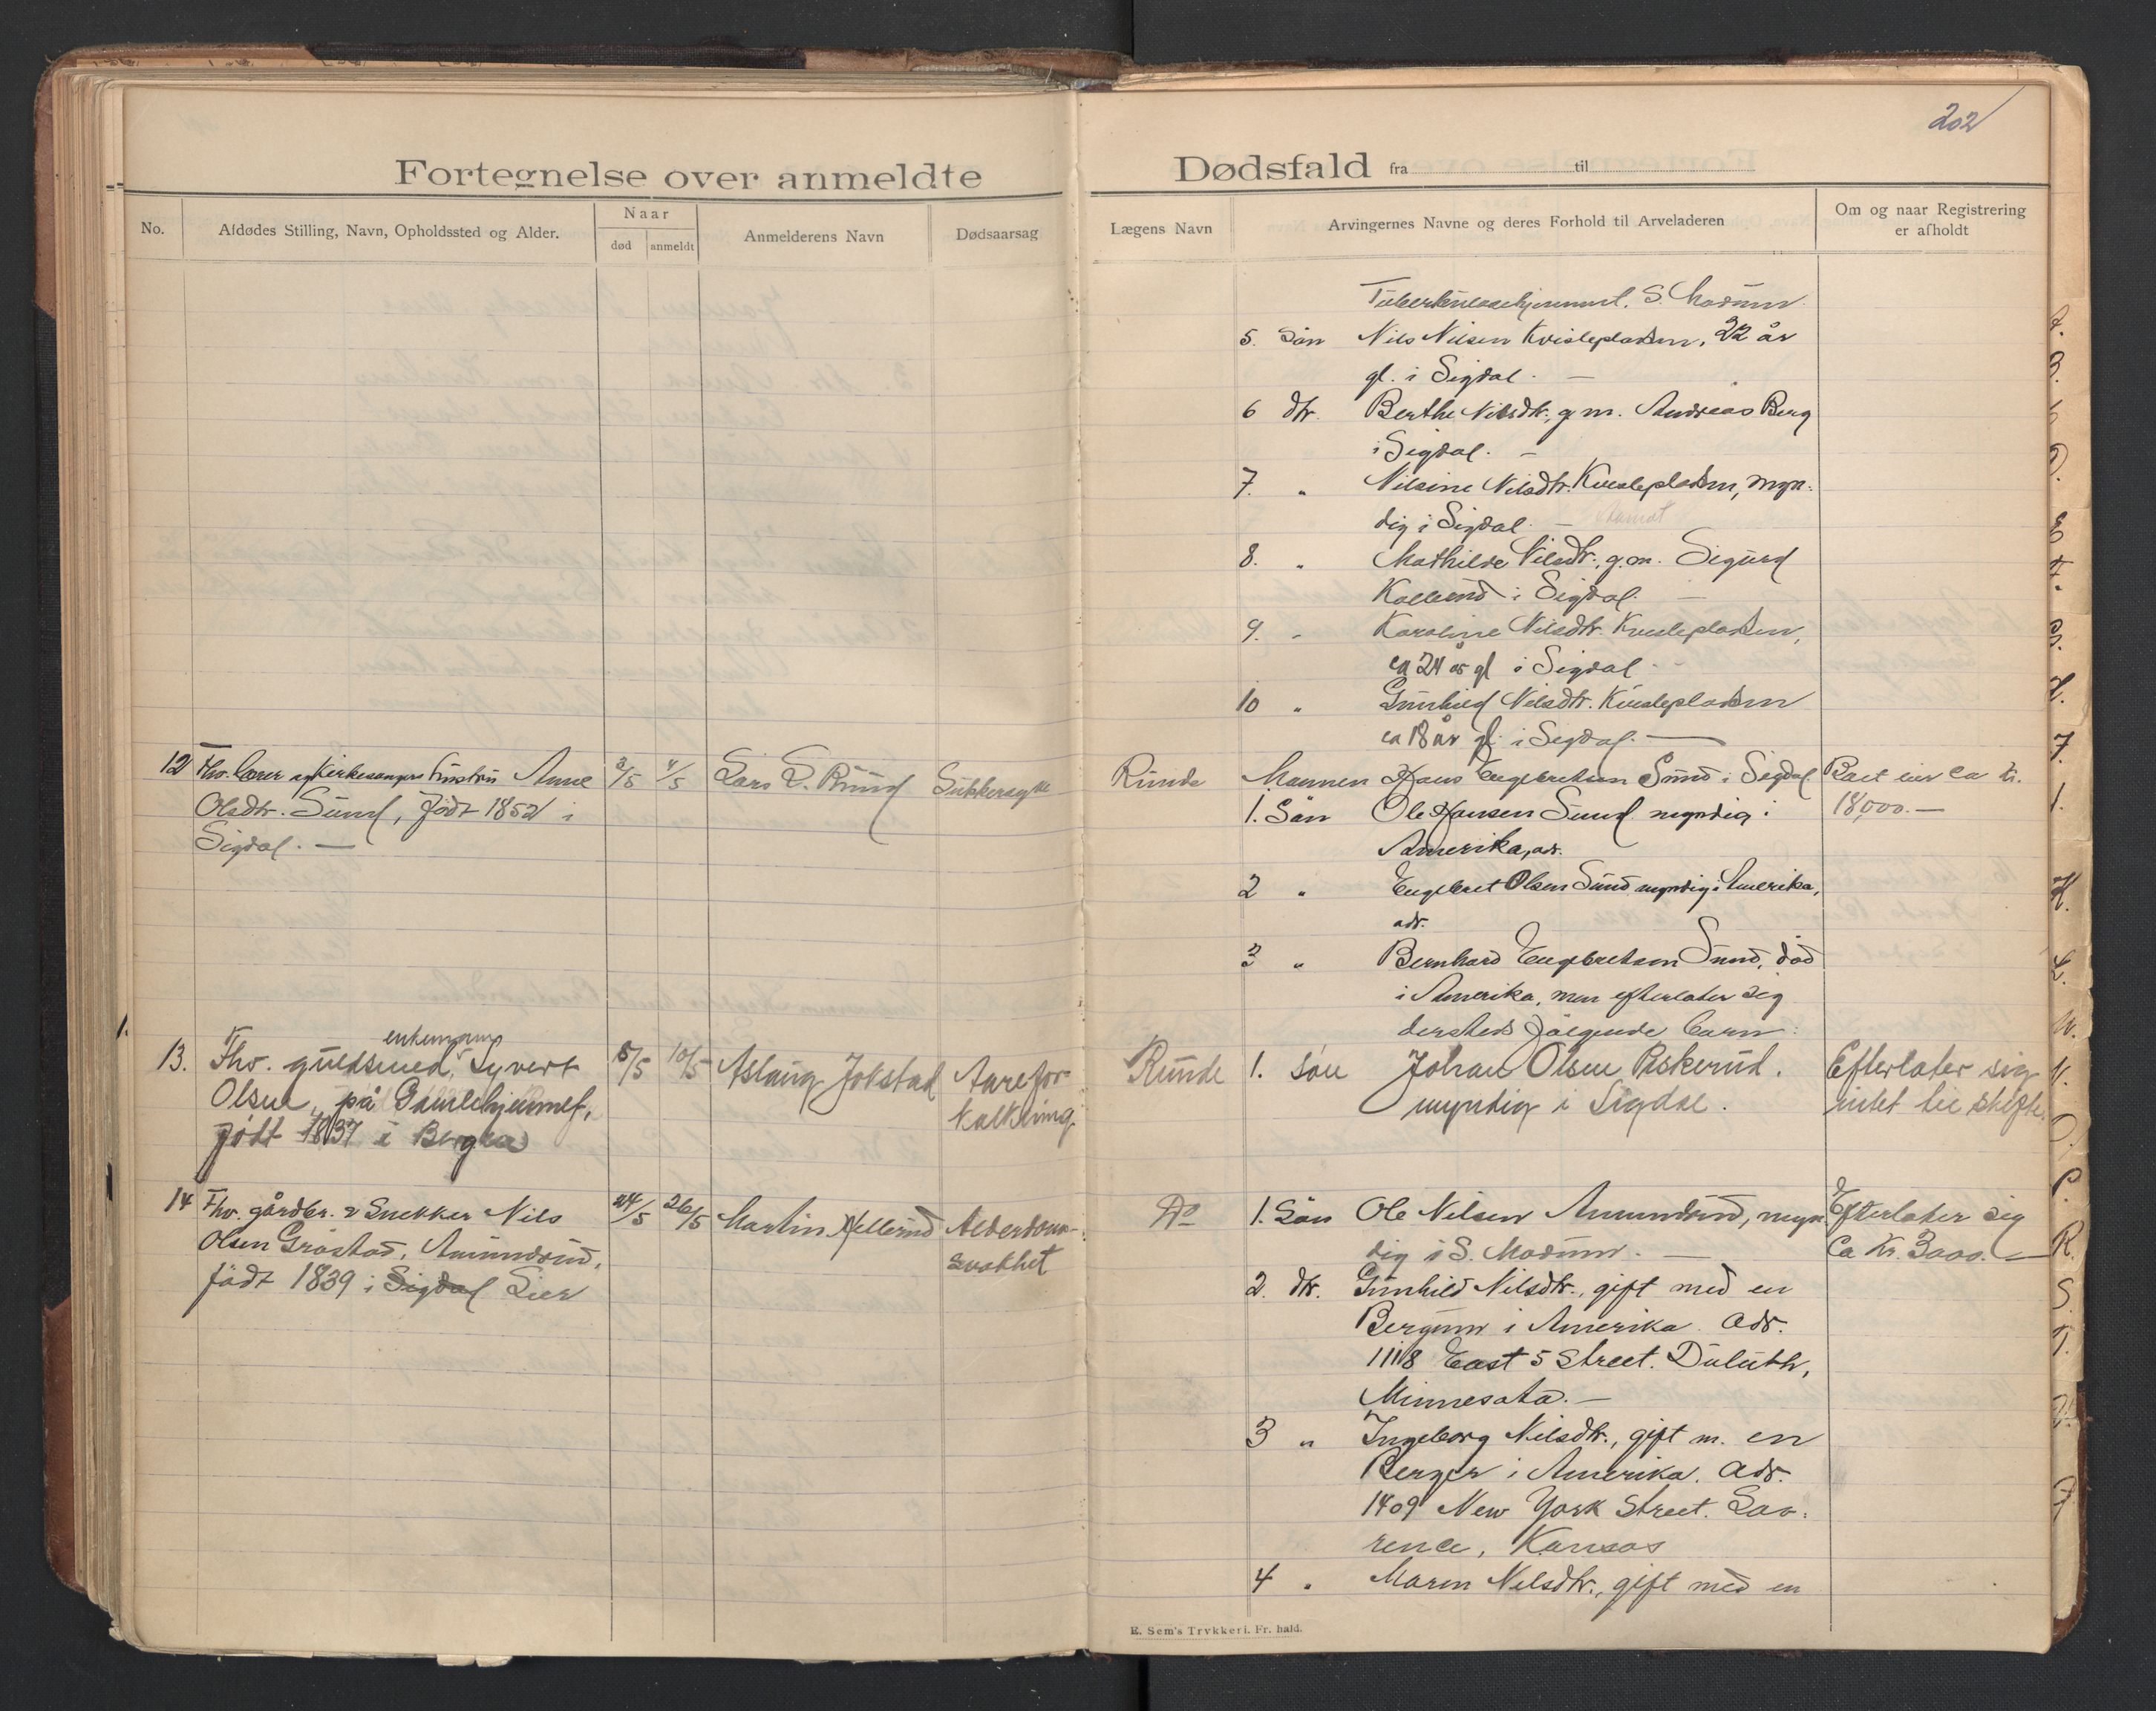 202
Fortegnelse over anmeldte Dødsfald fra til
No.
Afdødes Stilling, Navn, Opholdssted og Alder.
Naar
død
anmeldt
Anmelderens Navn
Dødsaarsag
Lægens Navn
Arvingernes Navne og deres Forhold til Arveladeren
Om og naar Registrering
er afholdt
Tuberkulosehjemmet. S. Modum.
5. Sön Nils Nilsen Kvisleplassen, 22 år
gl. i Sigdal. —
6 dtr. Berthe Nilsdtr., g. m. Andreas Berg
i Sigdal. —
7. " Nilsine Nilsdtr. Kvisleplassen, myn-
dig i Sigdal. —
8. " Mathilde Nilsdtr., g. m. Sigurd
i Sigdal. —
9. " Karoline Nilsdtr. Kvisleplassen,
ca 24 år gl i Sigdal. -
10 " Gunhild Nilsdtr. Kvisleplassen
ca 18 år gl. i Sigdal. —
12 Fhv. lærer og Kirkesangers hustru Anne
Olsdtr. Sund, födt 1852 i
Sigdal. —
3/5
4/5
Lars L. Ruud
Sukkersyke
Runde
Mannen Hans Engebretsen Sund i Sigdal.
1. Sön Ole Hansen Sund myndig i
Amerika, adr.
2 " Engebret Olsen Sund myndig i Amerika,
adr.
3 " Bernhard Engebretsen Sund, död
i Amerika, men efterlater sig
dersteds fölgende barn:
Boet eier ca kr.
18,000. —
13. Fhv. guldsmed, enkemann Syvert
Olsen, på Gamlehjemmet,
født 1837 i Bergen
8/5
10/5
Aslaug Jokstad
Aarefor-
kalkning
Runde
1. søn Johan Olsen Piskerud.
myndig i Sigdal.
Efterlater sig
intet til skifte.
14 Fhv. gårdbr. & Snekker Nils
Olsen Gröstad, Amundrud,
födt 1839 i Sigdal Lier
24/5
26/5
Martin Hellerud
Alderdoms-
svakhet
Do
1. Sön Ole Nilsen Amundrud, myn-
dig i S. Modum. —
2. dtr. Gunhild Nilsdtr., gift med en
Bergum i Amerika. Adr.
1118 East 5 Street. Duluth,
Minnesota. —
3 " Ingeborg Nilsdtr., gift m. en
Berger i Amerika. Adr.
1409 New York Street. Lav-
rence, Kansas
4 " Maren Nilsdtr., gift med en
Efterlater sig
ca kr. 3000. —
E. Sem's Trykkeri. Fr. hald.